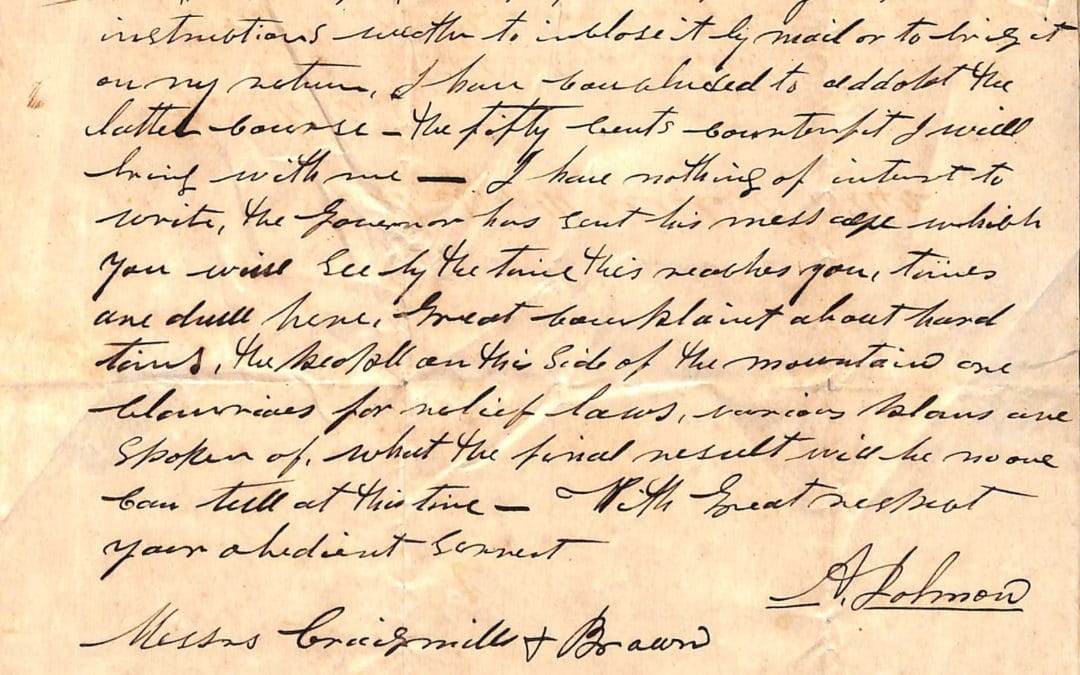 instructions wether to inclose it by mail or to bring it
on my return, I have concluded to addopt the
latter course – the fifty cents counterfit I will
bring with me — I have nothing of interest to
write, the Governor has sent his message which
you will see by the time this reaches you, times
are dull here, Great complaint about hard
times, the people on this side of the mountain are
clamrious for relief laws, various plans are
spoken of, what the final result will be no one
can tell at this time – With Great respect
your obedient servent
A. Johnson
Messrs Craigmills & Brown